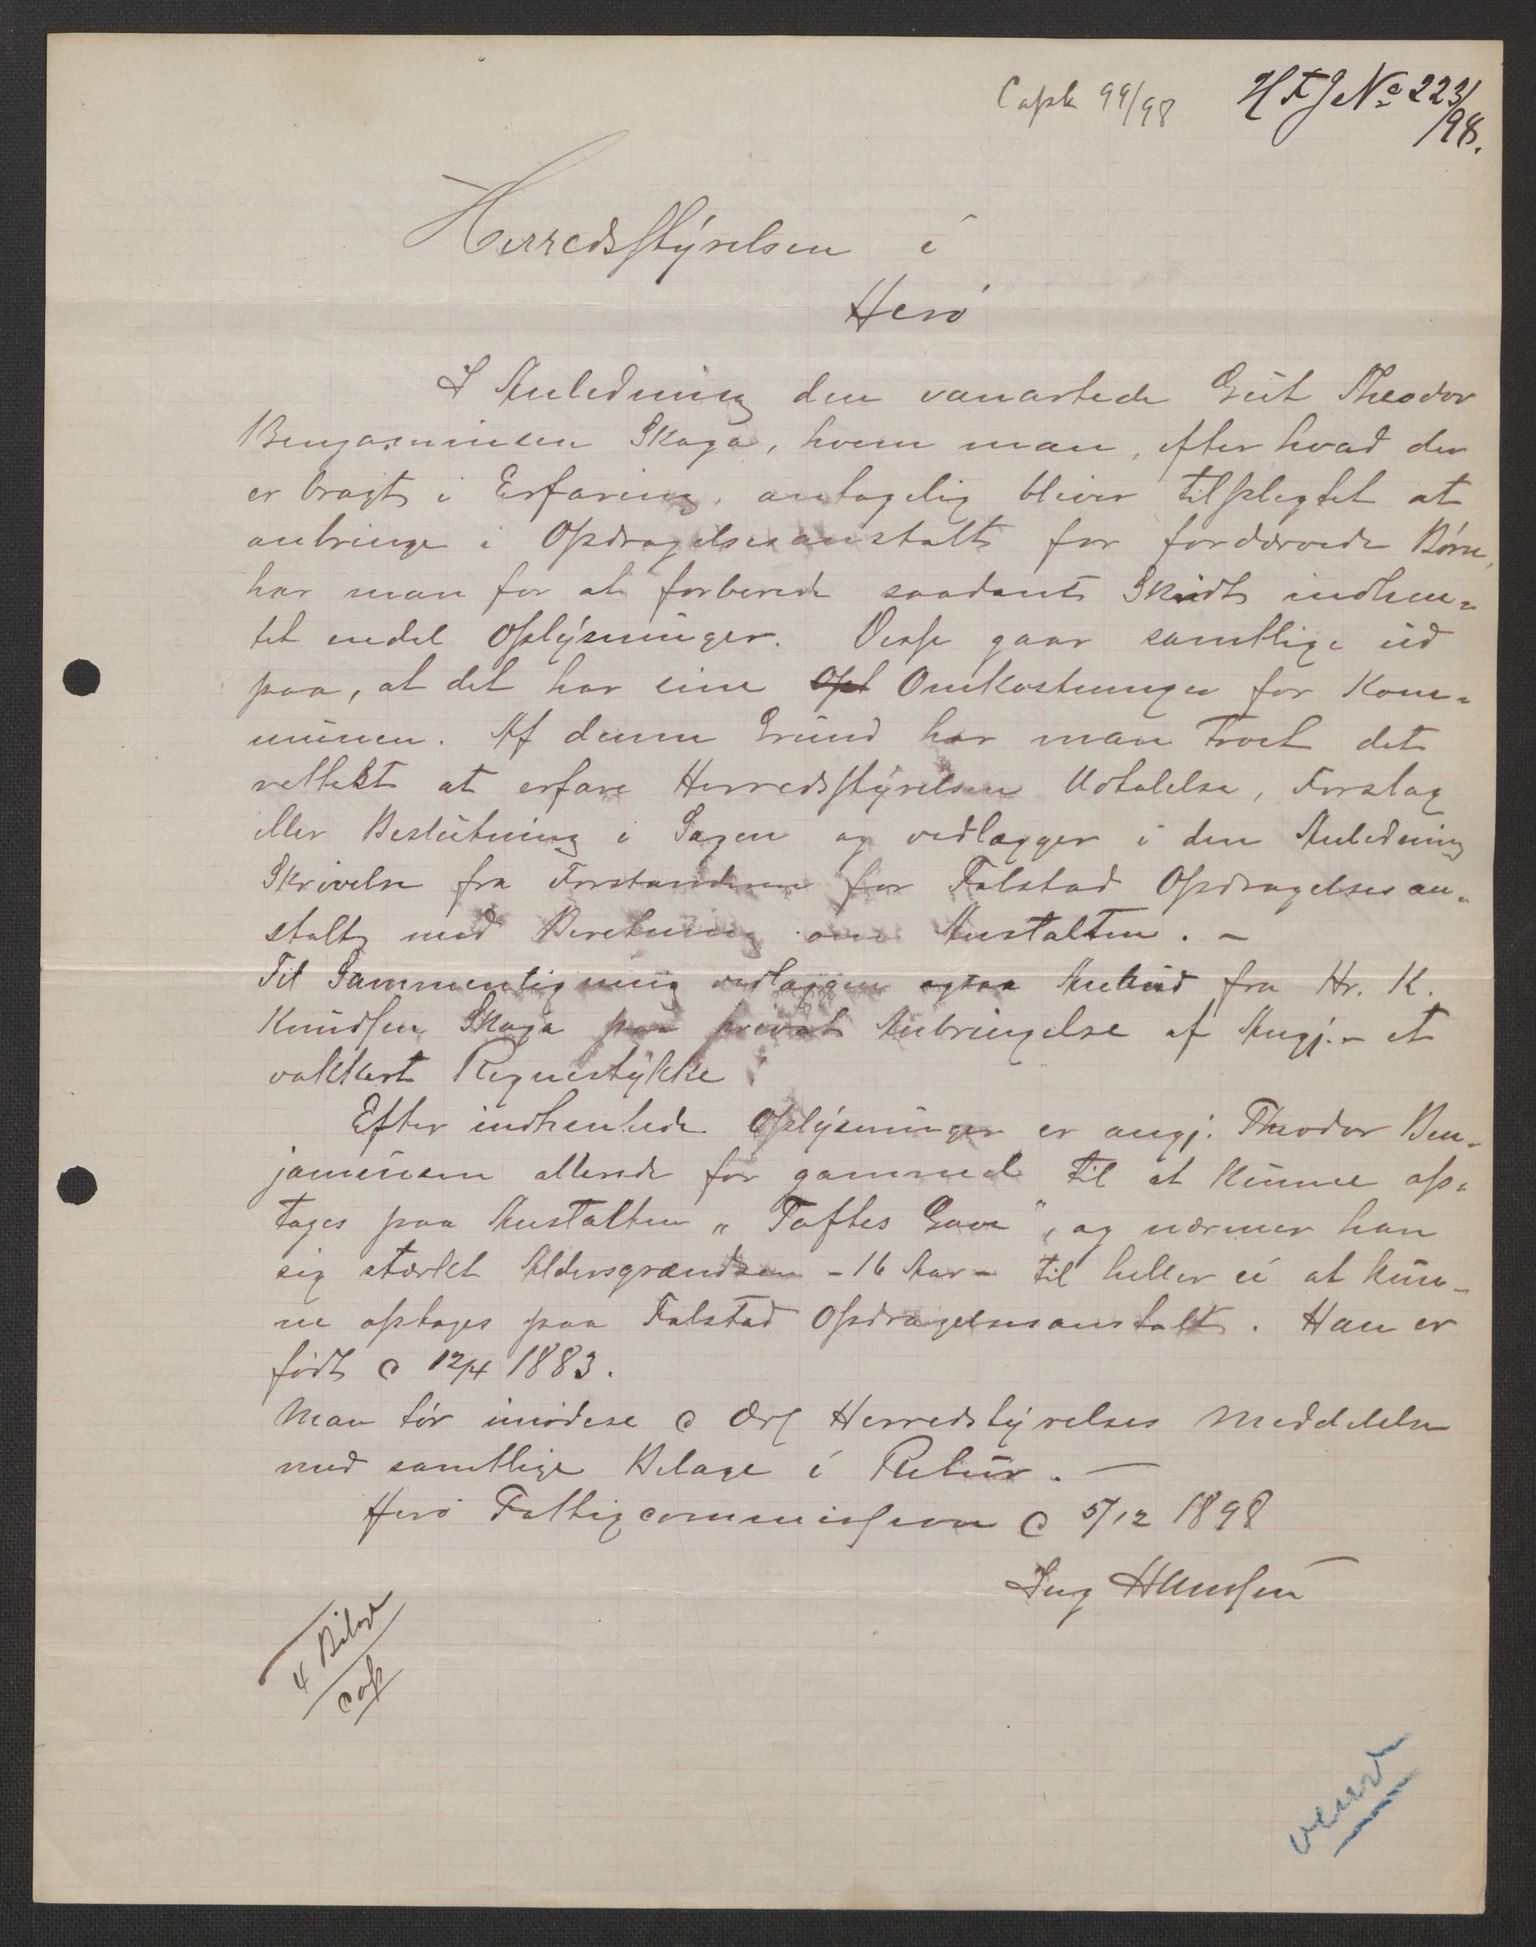 Copb 99/98 H F J No 223/98.
Herredsstyrelsen i
Herø
I Anledning den vanartede Gut Theodor
Benjaminsen Skaga, hvem man, efter hvad der
er bragt i Erfaring, antagelig bliver tilpligtet at
anbringe i Opdragelsesanstalt for fordærvede Børn,
har man for at forberede saadant Skridt indhen-
tet endel Oplysninger. Disse gaar samtlige ud
paa, at det har sine Opl Omkostninger for Kom-
munen. Af denne Grund har man troet det
rettest at erfare Herredsstyrelsen Udtalelse, Forslag
eller Beslutning i Sagen og vedlægger i den Anledning
Skrivelse fra Forstanderen for Falstad Opdragelsesan-
stalt med Beretning om Anstalten. -
Til Sammenligning vedlægges ogsaa Anbud fra Hr. K.
Knudsen Skaga paa privat Anbringelse af Angj. - et
vakkert Regnestykke!
Efter indhentede Oplysninger er angj. Theodor Ben-
jaminsen allerede for gammel til at kunne op-
tages paa Anstalten "Toftes Gave", og nærmer han
sig stærkt Aldersgrændsen - 16 Aar - til heller ei at kun-
ne optages paa Falstad Opdragelsesanstalt. Han er
født d 12/4 1883.
Man tør imødese d ærl Herredstyrelses Meddelelse
med samtlige Bilage i Retur. —
Herø Fattigcommission d 5/12 1898
Ing Hanssen
4 Bilage
cop